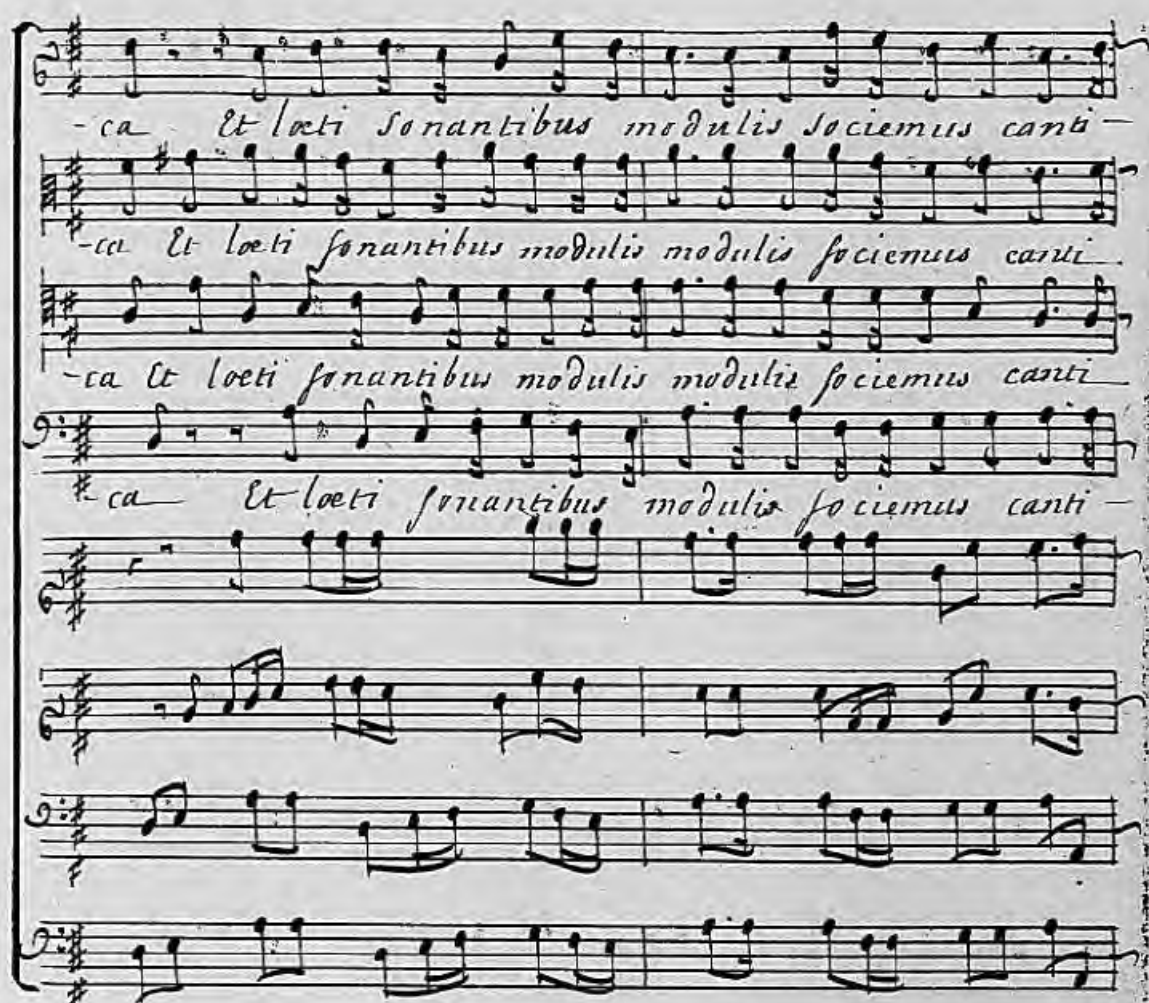 -ca Et lœti Sonantibus modulis sociemus canti-
-ca Et lœti sonantibus modulis modulis sociemus canti
-ca Et lœti sonantibus modulis modulis sociemus canti
-ca Et lœti sonantibus modulis sociemus canti-